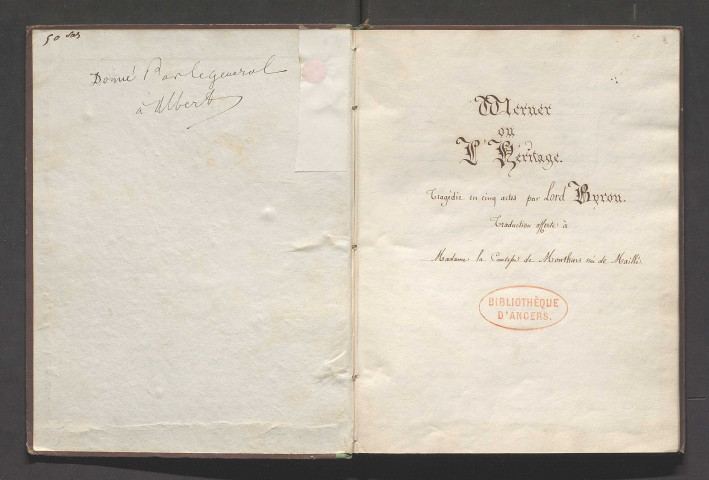 50 sols
Donné Par le general
à Albert
Werner
ou
L'Héritage.
Tragédie en cinq actes par Lord Byron.
Traduction offerte à
Madame la Comtesse de née de Maillé.
BIBLIOTHÈQUE
D'ANGERS.